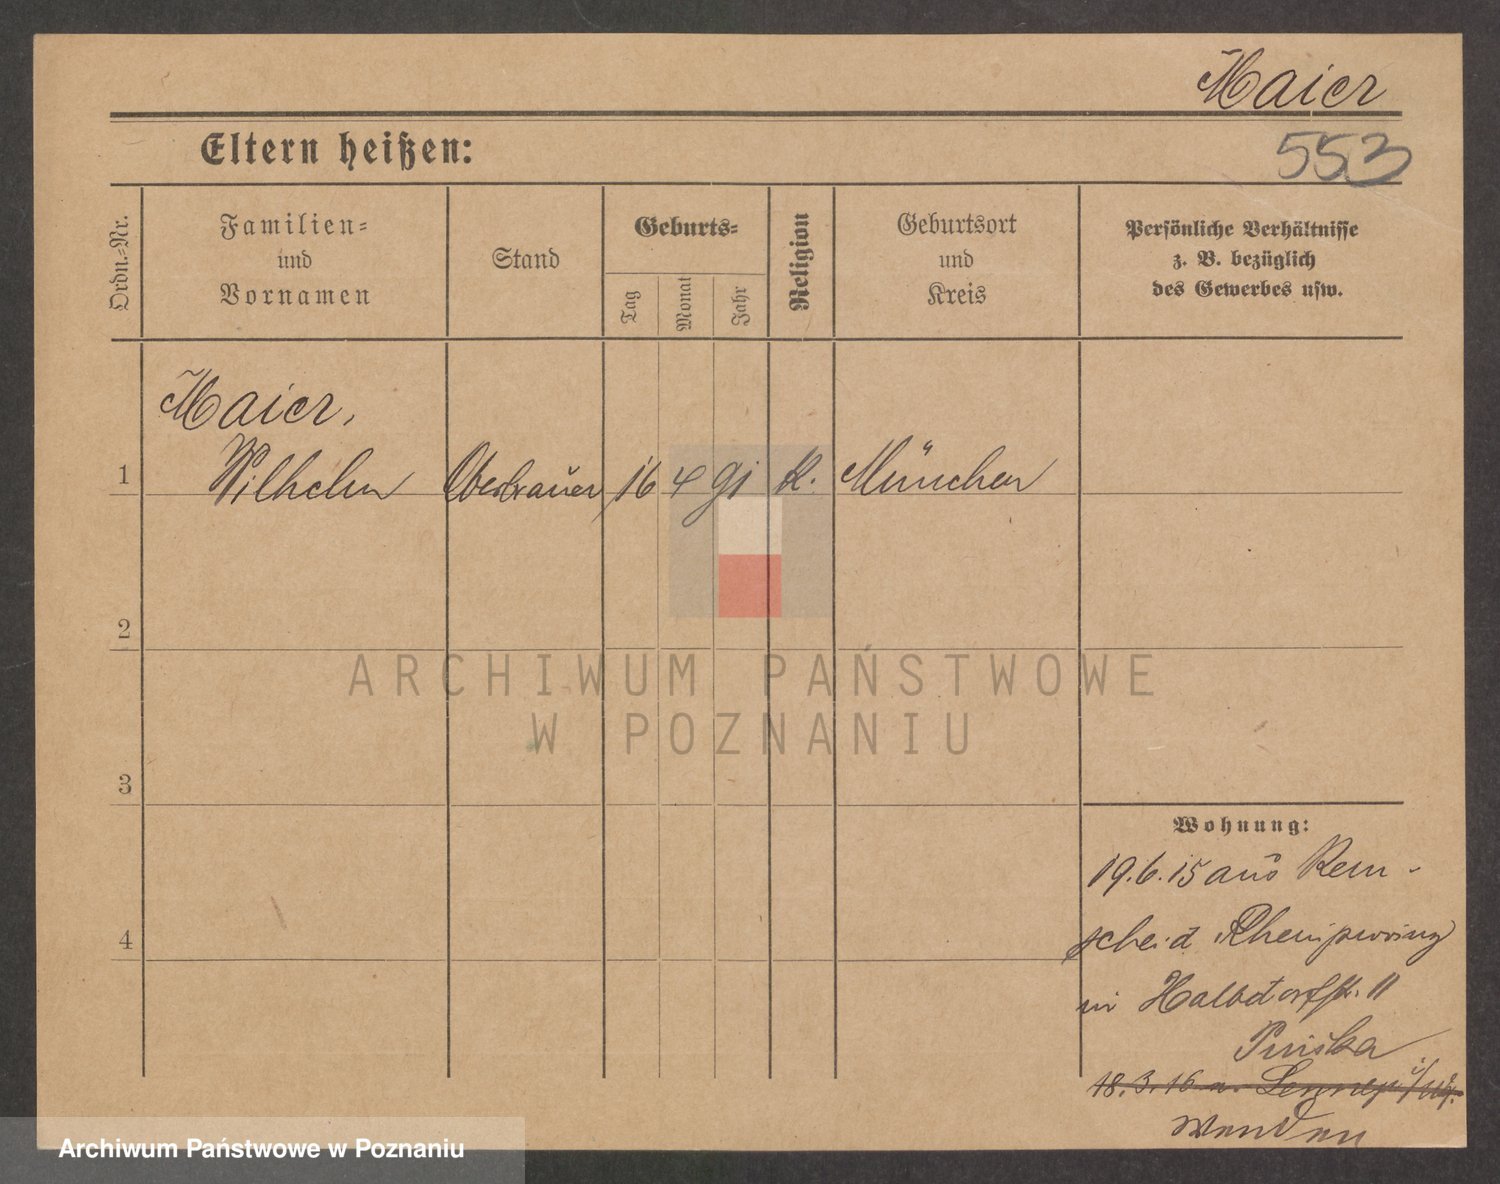 Maier
553
Eltern heißen:
Ordn.-Nr.
Familien-
und
Vornamen
Stand
Geburts-
Tag
Monat
Jahr
Religion
Geburtsort
und
Kreis
Persönliche Verhältnisse
z. B. bezüglich
des Gewerbes usw.
Maier,
1 Wilhelm Oberbrauer 16 4 91 k. München
2
ARCHIWUM PAŃSTWOWE
W POZNANIU
3
Wohnung:
19.6.15 aus Rem-
4
scheid Rheinprovinz
in Halbdorfstr. 11
18.3.16 n. Lennep
Archiwum Państwowe w Poznaniu